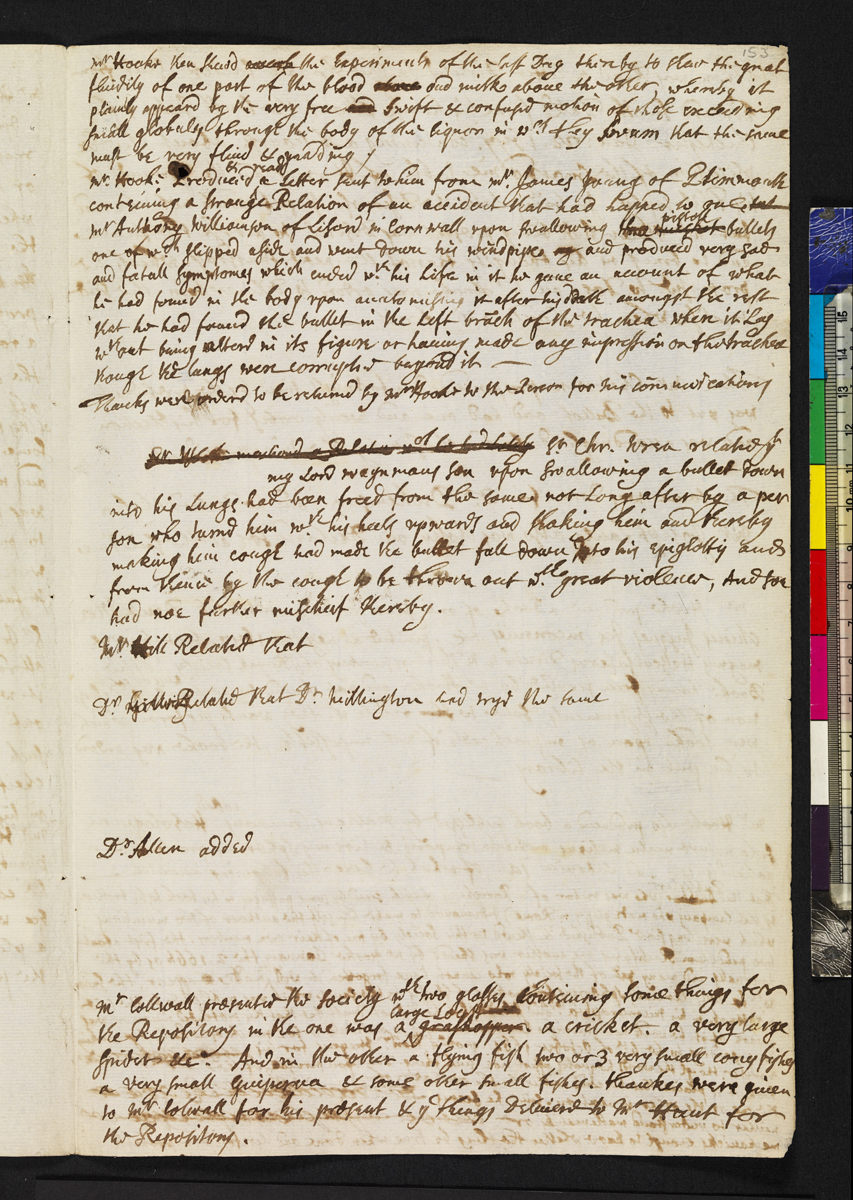 153
Mr Hooke then shewd the Experiments of the last Day thereby to shew the great
fluidity of one part of the blood and milke above the other, whereby it
plainly appeard by the very free and swift & confused motion of those exceeding
small globules through the body of the liquor in wch they swum that the same
must be very fluid &
Mr. Hooke Produced & read a Letter sent to him from Mr. James Young of Plimmouth
containing a strange Relation of an accident that had happed to one
Mr Anthony Williamson of Liscard in Cornwall upon swallowing two pistoll bullets
one of wch slipped aside and went down his windpipe and produced very sad
and fatall symptomes which ended wth his Life in it he gave an account of what
he had found in the body upon anatomising it after his death amongst the rest
that he had found the bullet in the Left branch of the trachea where it Lay
wthout being alterd in its figure or having made any impression on the trachea
though the lungs were corrupted beyond it
Thanks were orderd to be returned by Mr Hooke to the Person for his communications
mentiond a Relation wch he had lately Sr Chr. Wren related yt
my Lord Waynmans son upon swallowing a bullet down
into his Lungs had been freed from the same not Long after by a per
son who turnd him wth his heels upwards and shaking him and thereby
making him cough had made the bullet fall down to his epiglottis and
from thence by the cough to be thrown out wth great violence, And soe
had noe further mischeif thereby.
Mr Hill Related that
Dr Related that Dr Millington had tryd the same
Dr Allen added
Mr Collwall presented the society wth two glasses Containing some things for
the Repository in the one was a large Locust grashopper a cricket. a very large
spider &c. And in the other a flying fish two or 3 very small cony fishes
a very small Guiperua & some other small fishes. thankes were given
to Mr Colwall for his present & ye things Deliverd to Mr Hunt for
the Repository.